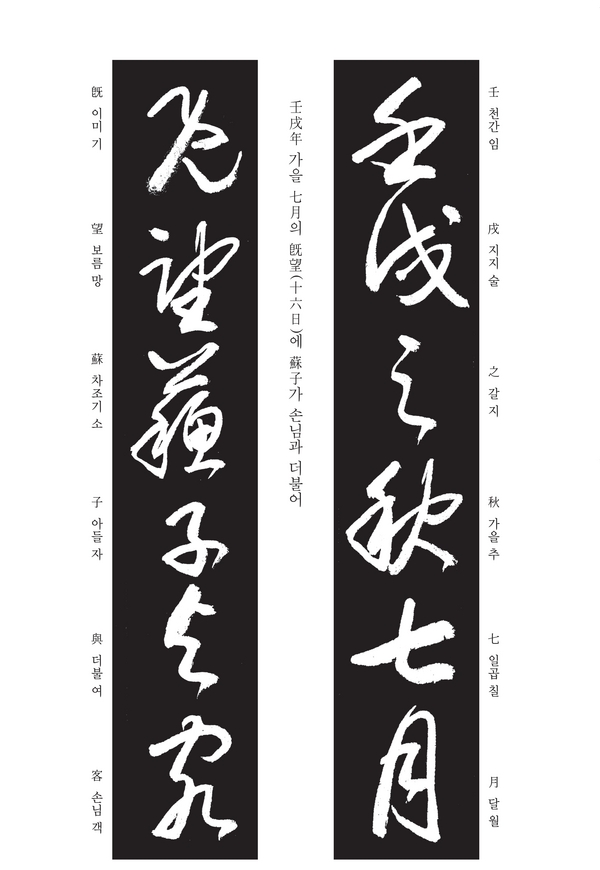 壬 천간 임
戌 지지 술
之 갈 지
秋 가을 추
七 일곱 칠
月 달 월
壬戌之秋七月
壬戌年 가을 七月의 旣望(十六日)에 蘇子가 손님과 더불어
旣望蘇子与客
旣 이미 기
望 보름 망
蘇 차조기 소
子 아들 자
與 더불 여
客 손님 객